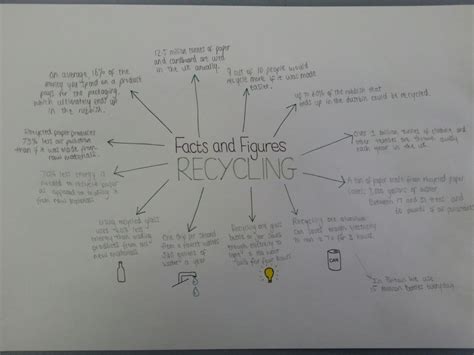 On average, 16% of the
money you spend on a product
pays for the packaging,
which ultimately ends up
in the rubbish.
12.5 million tonnes of paper
and cardboard are used
in the UK annually.
9 out of 10 people would
recycle more if it was made
easier.
up to 60% of the rubbish that
ends up in the dustbin could be recycled.
Recycled paper produces
73% less air pollution
than if it was made from
raw materials.
Facts and Figures
RECYCLING
Over
tonnes of
each year in the UK.
70% less energy is
needed to recycle paper
as opposed to making it
from raw materials.
A ton of paper made from recycled paper
saves
of water
Between 17 and
trees and
of air pollutants
Using recycled glass
uses
less
energy than making
products from
new materials.
One drip per second
from a
wastes
of
water a year.
Recycling one glass
bottle or jar saves
enough electricity to
light
bulb for four hours
Recycling one aluminium
can saves enough electricity
to run a TV for 3 hours.
CAN
In Britain we use
million
everyday